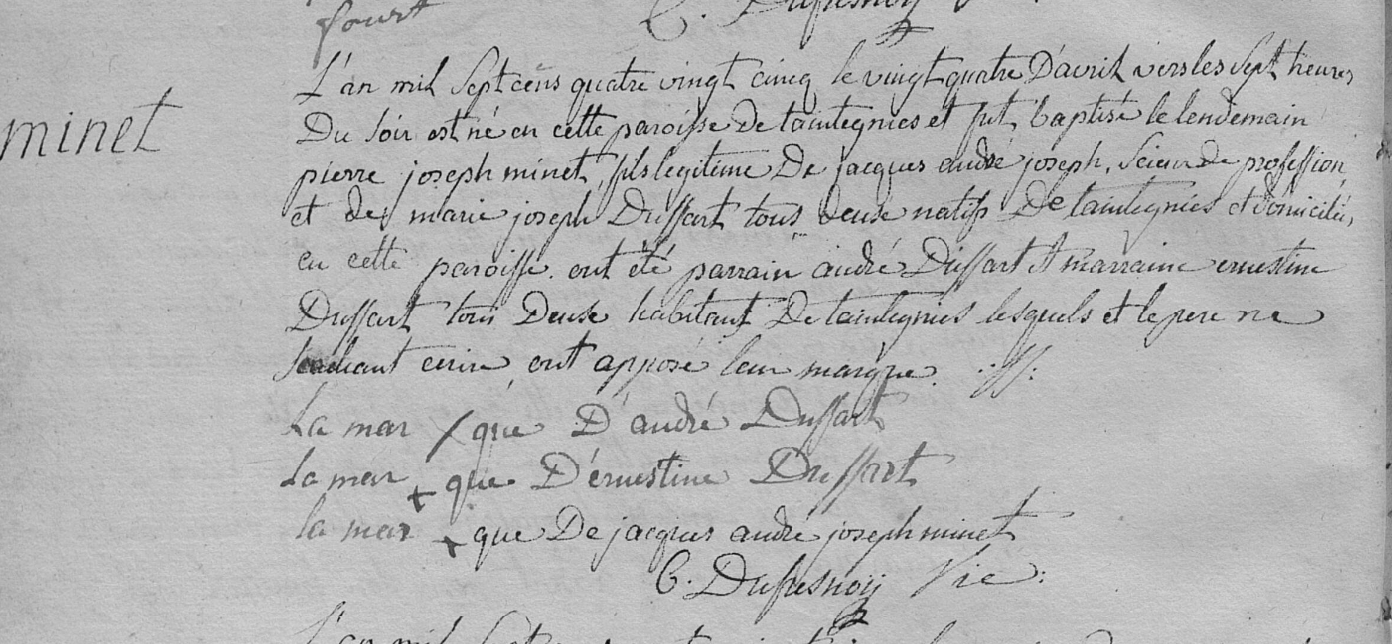 C. Dufresnoy
L'an mil Sept cens quatre vingt cinq le vingt quatre D'avril vers les Sept heures
minet
Du Soir est né en cette paroisse De taintegnies et fut baptisé le lendemain
pierre joseph minet, fils legitime De jacques andré joseph, Scieur De profession
et de marie joseph Dussart tous deuse natifs De taintegnies et domiciliés
en cette paroisse. ont été parrain andré Dussart et marraine ernestine
Dussart tous Deuse habitant De taintegnies lesquels et le pere ne
Sachant ecrire ont apposé leur marque.
La mar x que D'andré Dussart
La mar + que D'ernestine Dussart
la mar + que De jacques andré joseph minet
C. Dufresnoy Vic:
L'an mil Sept